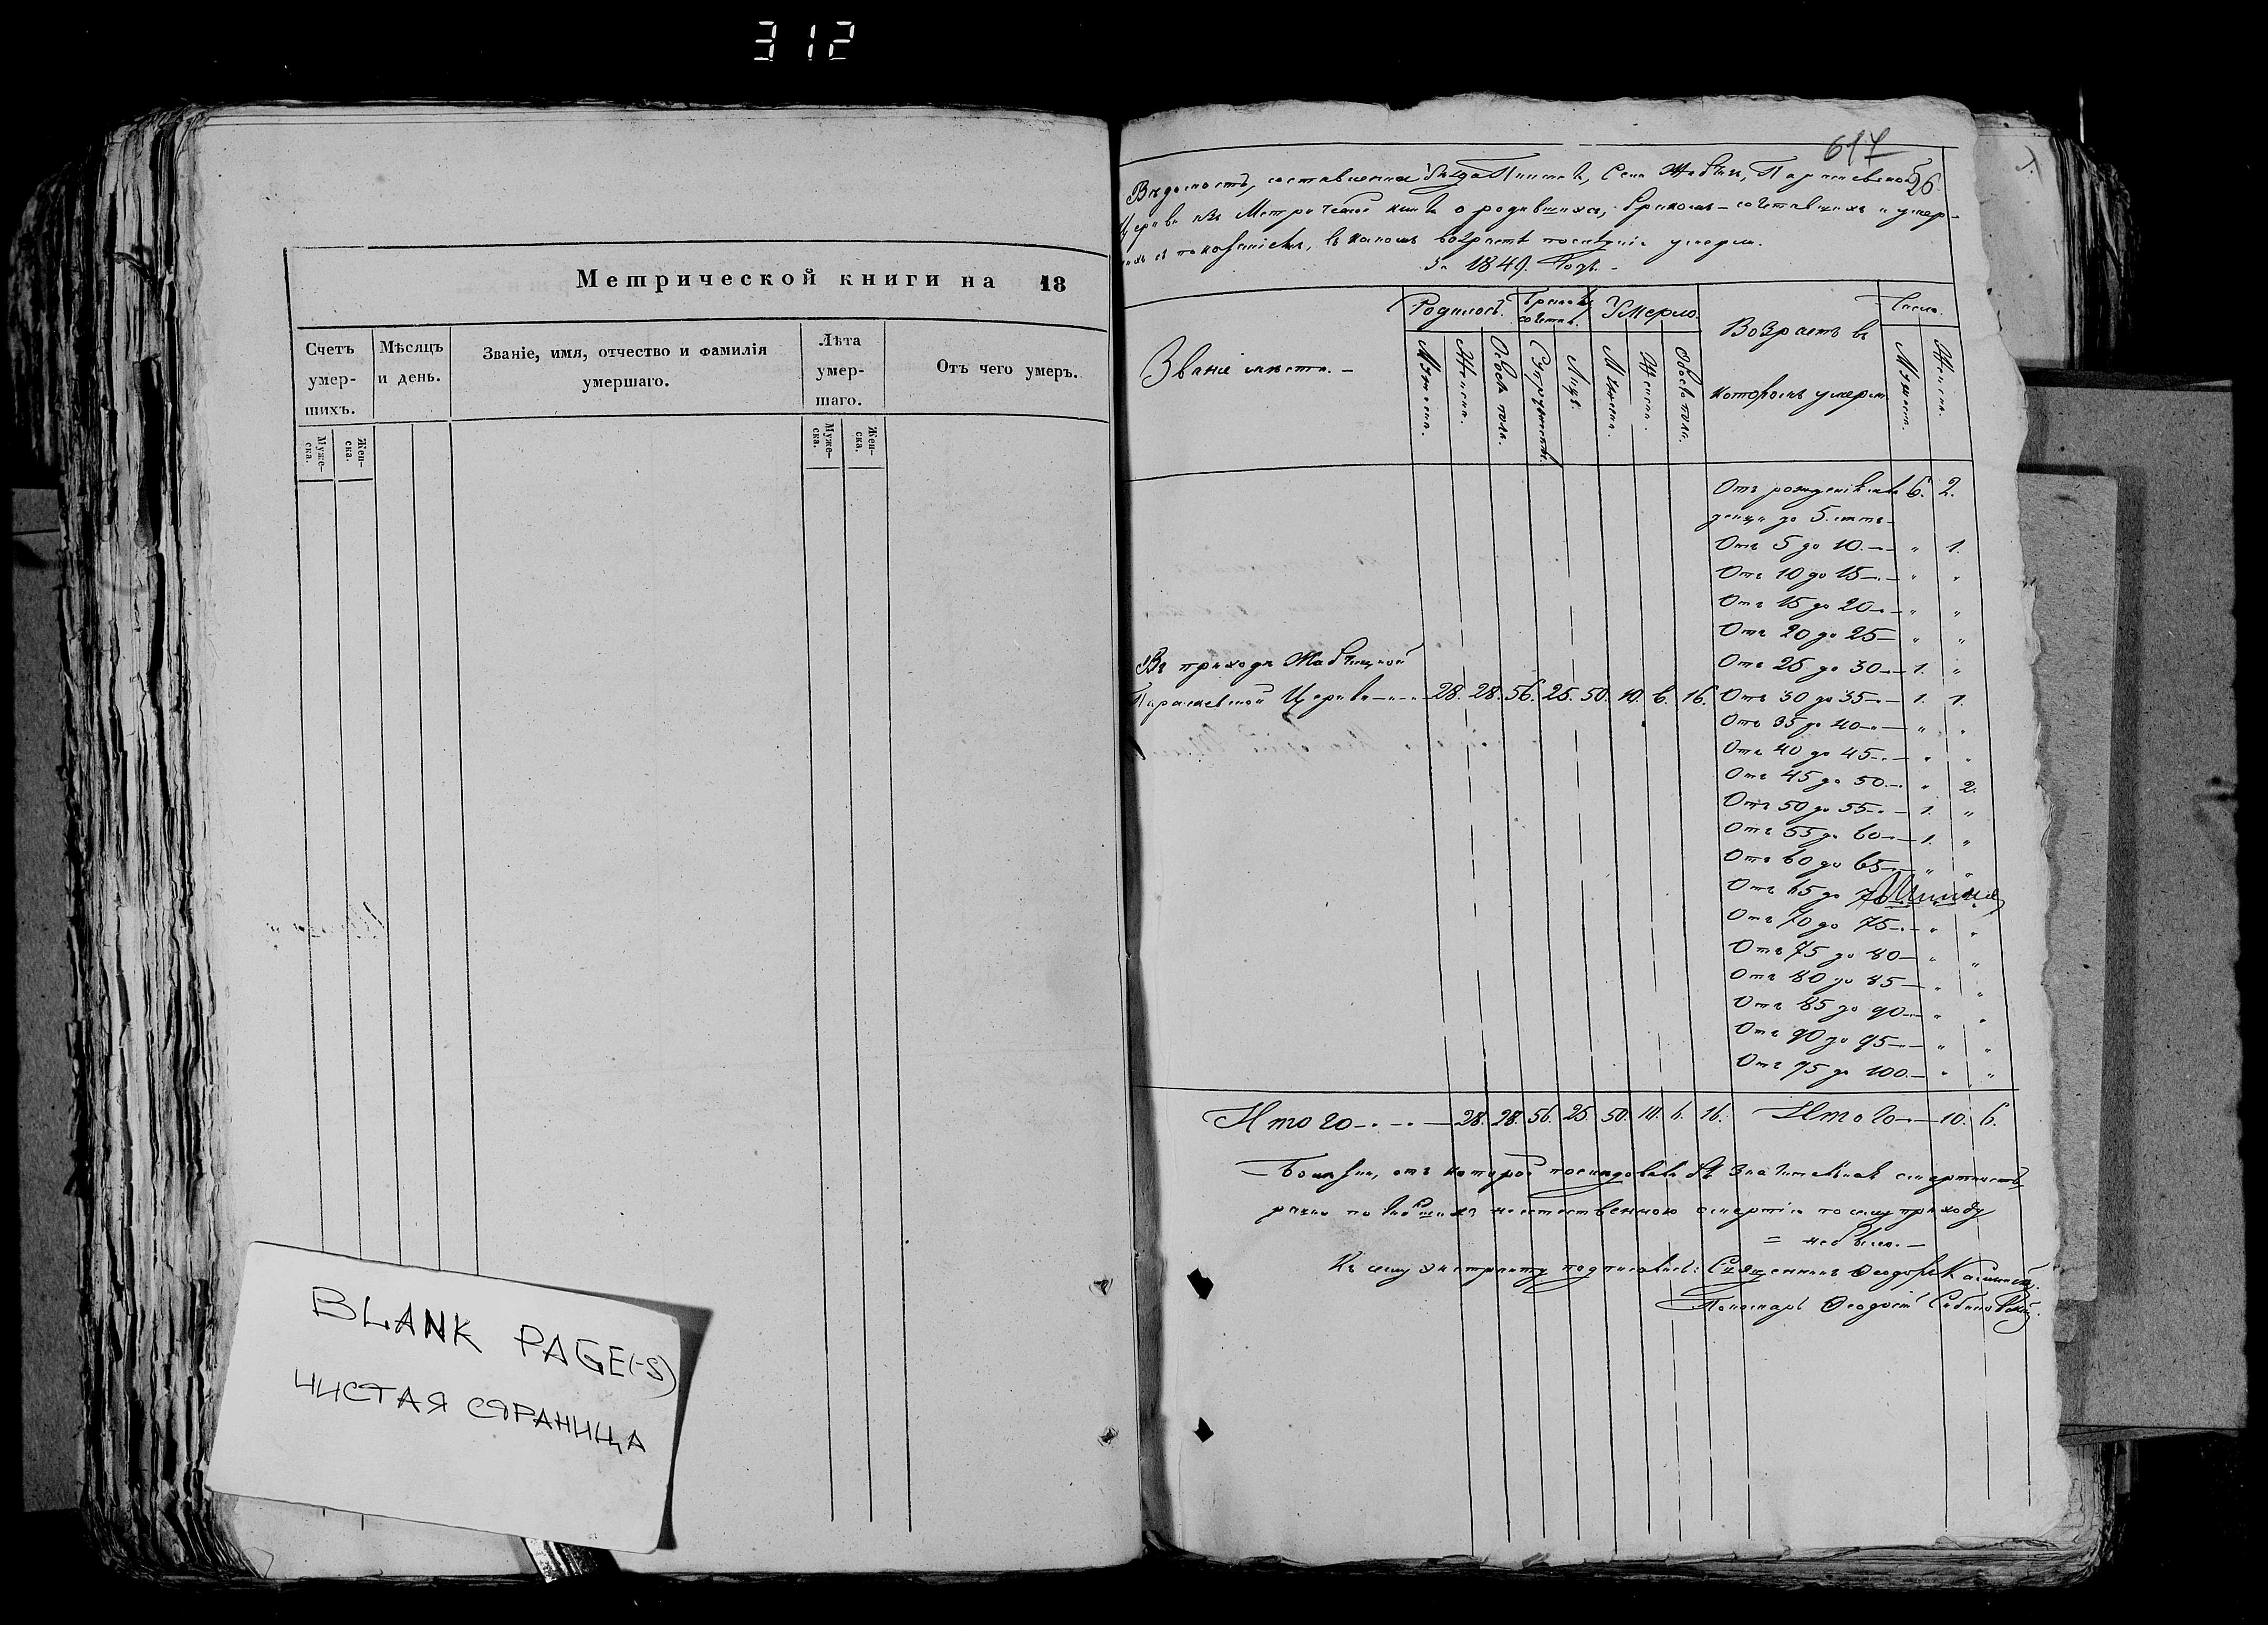 312
Метрической книги на 18
Счетъ умер- шихъ.
Мѣсяцъ и день.
Званіе, имя, отчество и фамилія умершаго.
Лѣта умер- шаго.
Отъ чего умеръ.
Муже- ска.
Жен- ска.
Муже- ска.
Жен- ска.
BLANK PAGE(-S)
ЧИСТАЯ СТРАНИЦА
617
26
Вѣдомость, Уѣзда Села
Метрической о родившихся, бракомъ-сочетавшихся и умер-
въ возрастѣ
За 1849. Годъ.
Званіе мѣста.
Родилось.
Бракомъ сочетал.
Умерло.
Возрастъ въ
которомъ умерли
Число.
Мужеска.
Женска.
Обоего пола.
Супружествъ.
Лицъ.
Мужеска.
Женска.
Обоего пола.
Мужеска.
Женска.
Отъ рожденія 6. 2.
до 5. лѣтъ
Отъ 5 до 10.— " 1.
Отъ 10 до 15— " "
Отъ 15 до 20— " "
Отъ 20 до 25— " "
Отъ 25 до 30— 1. "
Въ приходѣ
Церкви 28. 28. 56. 25. 50. 10. 6. 16. Отъ 30 до 35— 1. 1.
Отъ 35 до 40— " "
Отъ 40 до 45— " "
Отъ 45 до 50— " 2.
Отъ 50 до 55— 1. "
Отъ 55 до 60— 1. "
Отъ 60 до 65— " "
Отъ 65 до 70
Отъ 70 до 75— " "
Отъ 75 до 80— " "
Отъ 80 до 85— " "
Отъ 85 до 90— " "
Отъ 90 до 95— " "
Отъ 95 до 100.— " "
Итого 28. 28. 56. 25. 50. 10. 6. 16. Итого 10. 6.
отъ которой послѣдовала бы значительная смертность,
неестественною смертію по сему приходу
= небыло. —
Къ сему экстракту подписались: Священникъ Ѳеодоръ
Пономарь Ѳеодосій